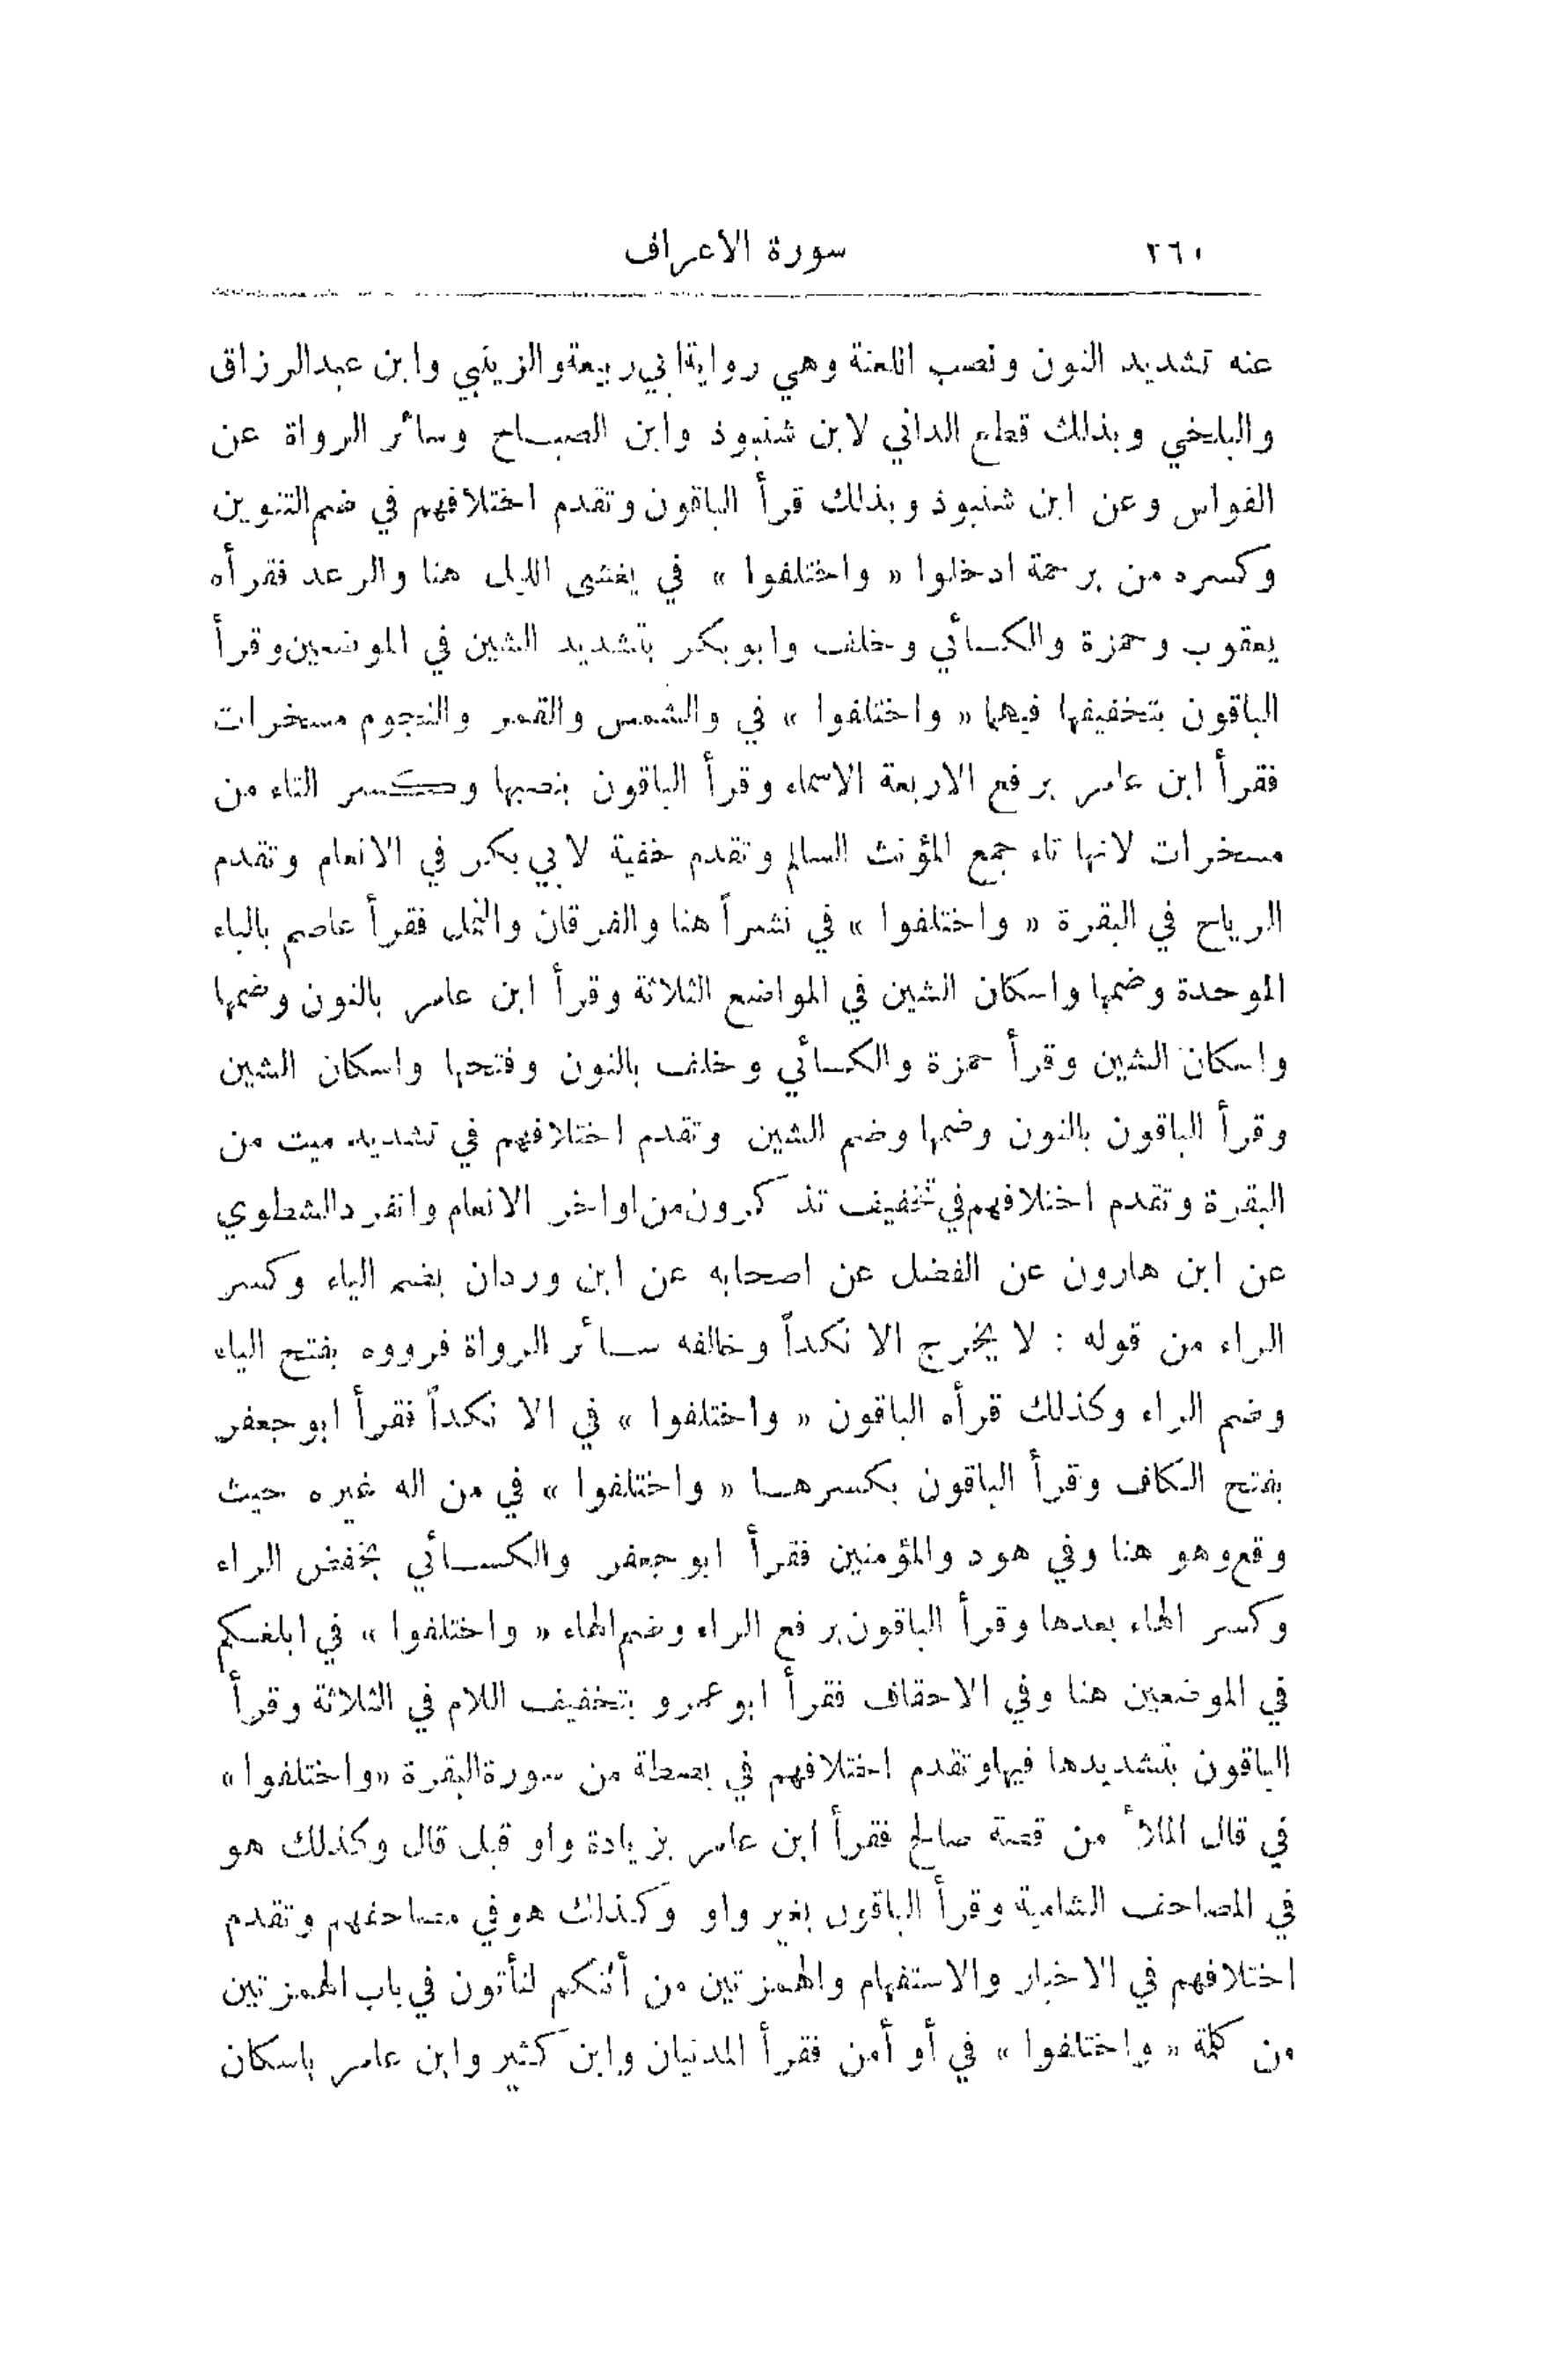 ٢٦٠ سورة الاعراف
عنه تشديد النون ونصب اللعنة وهي رواية ابي ربيعة والزينبي وابن عبد الرزاق
والبلخي وبذلك قطع الداني لابن شنبوذ وابن الصباح وسائر الرواة عن
القواس وعن ابن شنبوذ وبذلك قرأ الباقون وتقدم اختلافهم في ضم التنوين
وكسره من برحمة ادخلوا « واختلفوا » في يغشى الليل هنا والرعد فقرأه
يعقوب وحمزة والكسائي وخلف وابو بكر بتشديد الشين في الموضعين وقرأ
الباقون بتخفيفها فيهما « واختلفوا » في والشمس والقمر والنجوم مسخرات
فقرأ ابن عامر برفع الاربعة الاسماء وقرأ الباقون بنصبها وكسر التاء من
مسخرات لانها تاء جمع المؤنث السالم وتقدم خفية لابي بكر في الانعام وتقدم
الرياح في البقرة « واختلفوا » في نشراً هنا والفرقان والنمل فقرأ عاصم بالباء
الموحدة وضمها واسكان الشين في المواضع الثلاثة وقرأ ابن عامر بالنون وضمها
واسكان الشين وقرأ حمزة والكسائي وخلف بالنون وفتحها واسكان الشين
وقرأ الباقون بالنون وضمها وضم الشين وتقدم اختلافهم في تشديد ميت من
البقرة وتقدم اختلافهم في تخفيف تذكرون من اواخر الانعام وانفرد الشطوي
عن ابن هارون عن الفضل عن اصحابه عن ابن وردان بضم الياء وكسر
الراء من قوله : لا يخرج الا نكداً وخالفه سائر الرواة فرووه بفتح الياء
وضم الراء وكذلك قرأه الباقون « واختلفوا » في الا نكداً فقرأ ابو جعفر
بفتح الكاف وقرأ الباقون بكسرها « واختلفوا » في من اله غيره حيث
وقع وهو هنا وفي هود والمؤمنين فقرأ ابو جعفر والكسائي بخفض الراء
وكسر الهاء بعدها وقرأ الباقون برفع الراء وضم الهاء « واختلفوا » في ابلغكم
في الموضعين هنا وفي الاحقاف فقرأ ابو عمرو بتخفيف اللام في الثلاثة وقرأ
الباقون بتشديدها فيها وتقدم اختلافهم في بصطة من سورة البقرة «واختلفوا»
في قال الملأ من قصة صالح فقرأ ابن عامر بزيادة واو قبل قال وكذلك هو
في المصاحف الشامية وقرأ الباقون بغير واو وكذلك هو في مصاحفهم وتقدم
اختلافهم في الاخبار والاستفهام والهمزتين من أئنكم لتأتون في باب الهمزتين
من كلمة « واختلفوا » في أو أمن فقرأ المدنيان وابن كثير وابن عامر باسكان